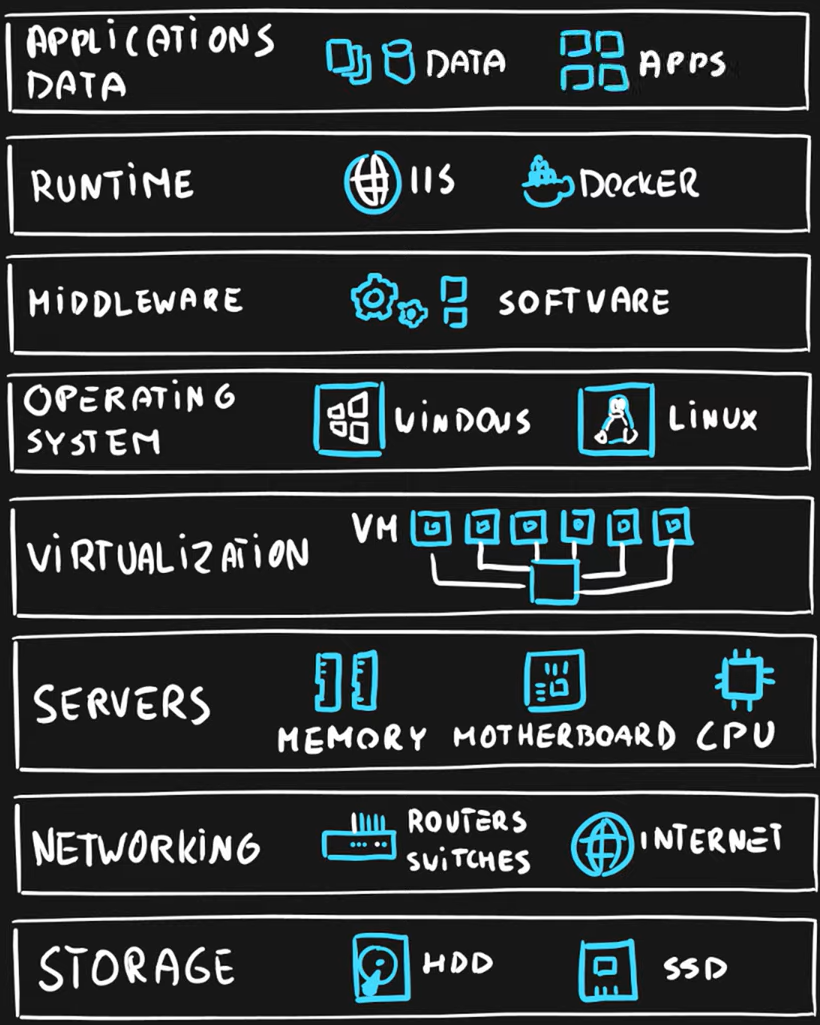 APPLICATIONS
DATA
DATA
APPS
RUNTIME
IIS
DOCKER
MIDDLEWARE
SOFTWARE
OPERATING
SYSTEM
WINDOWS
LINUX
VIRTUALIZATION
VM
SERVERS
MEMORY
MOTHERBOARD
CPU
NETWORKING
ROUTERS
SWITCHES
INTERNET
STORAGE
HDD
SSD